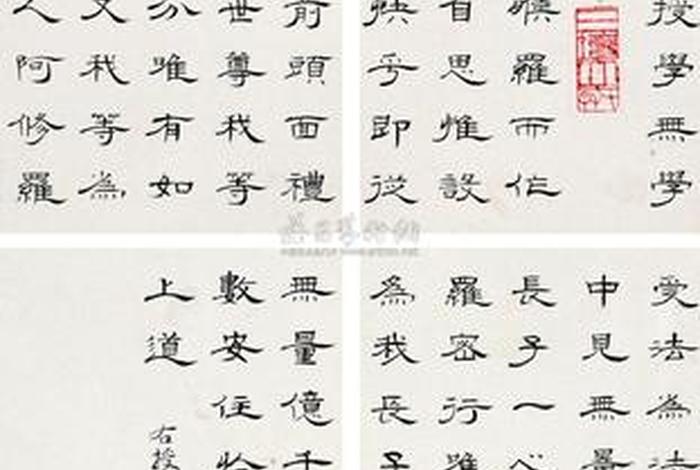 授學無學
睺羅而作
自思惟設
快乎即從
前頭面禮
世尊我等
分唯有如
又我等為
人阿修羅
受法為法
中見無量
長子一心
羅密行唯
為我長子
無量億千
數安住於
上道
右授